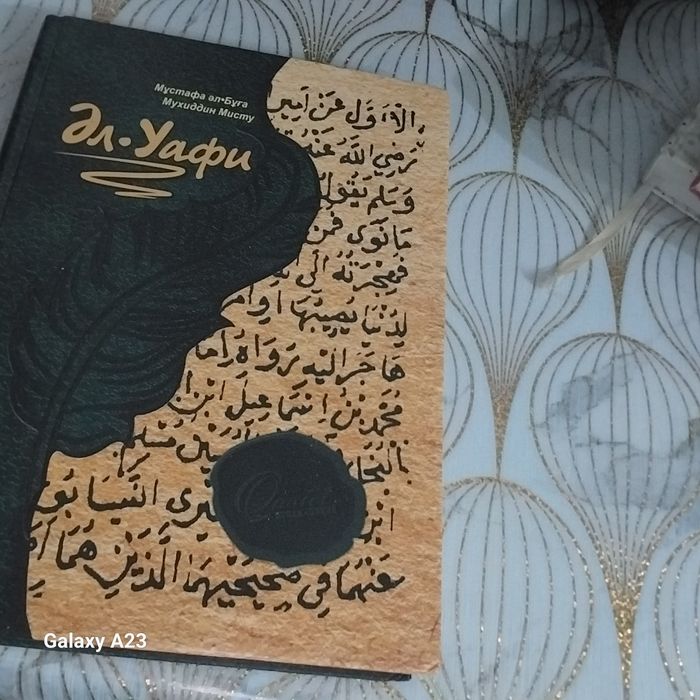 Мұстафа әл-Бұға
Мухиддин Мисту
Әл-Уафи
الْأَوَّلُ عَنْ أَمِيرِ
رَضِيَ اللَّهُ عَنْهُ
وَسَلَّمَ يَقُولُ
مَا نَوَى فَمَنْ
فَهِجْرَتُهُ إِلَى
لِدُنْيَا يُصِيبُهَا أَوِ امْرَ
هَاجَرَ إِلَيْهِ رَوَاهُ إِمَا
مُحَمَّدُ بْنُ إِسْمَاعِيلَ ابْنِ
مُسْلِمُ
النَّيْسَابُورِي
عَنْهُمَا فِي صَحِيحَيْهِمَا الَّذَيْنِ هُمَا
Galaxy A23